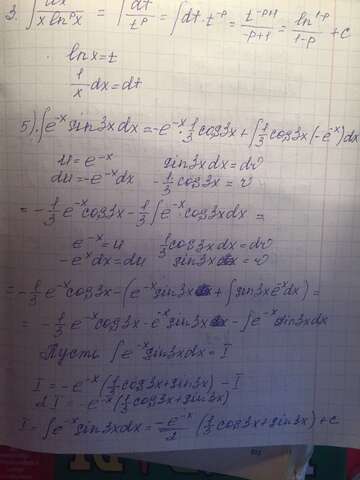 3. ∫ dx / x ln^p x = ∫ dt / t^p = ∫ dt · t^-p = t^-p+1 / -p+1 = ln^1-p / 1-p + c
ln x = t
1/x dx = dt
5) ∫ e^-x sin3x dx = -e^-x · 1/3 cos3x + ∫ 1/3 cos3x (-e^-x) dx
u = e^-x sin3x dx = dv
du = -e^-x dx -1/3 cos3x = v
= -1/3 e^-x cos3x - 1/3 ∫ e^-x · cos3x dx =
e^-x = u 1/3 cos3x dx = dv
-e^-x dx = du sin3x = v
= -1/3 e^-x cos3x - (e^-x sin3x + ∫ sin3x e^-x dx) =
= -1/3 e^-x cos3x - e^-x sin3x - ∫ e^-x sin3x dx
Пусть ∫ e^-x sin3x dx = I
I = -e^-x (1/3 cos3x + sin3x) - I
2I = -e^-x (1/3 cos3x + sin3x)
I = ∫ e^-x sin3x dx = -e^-x / 2 (1/3 cos3x + sin3x) + c